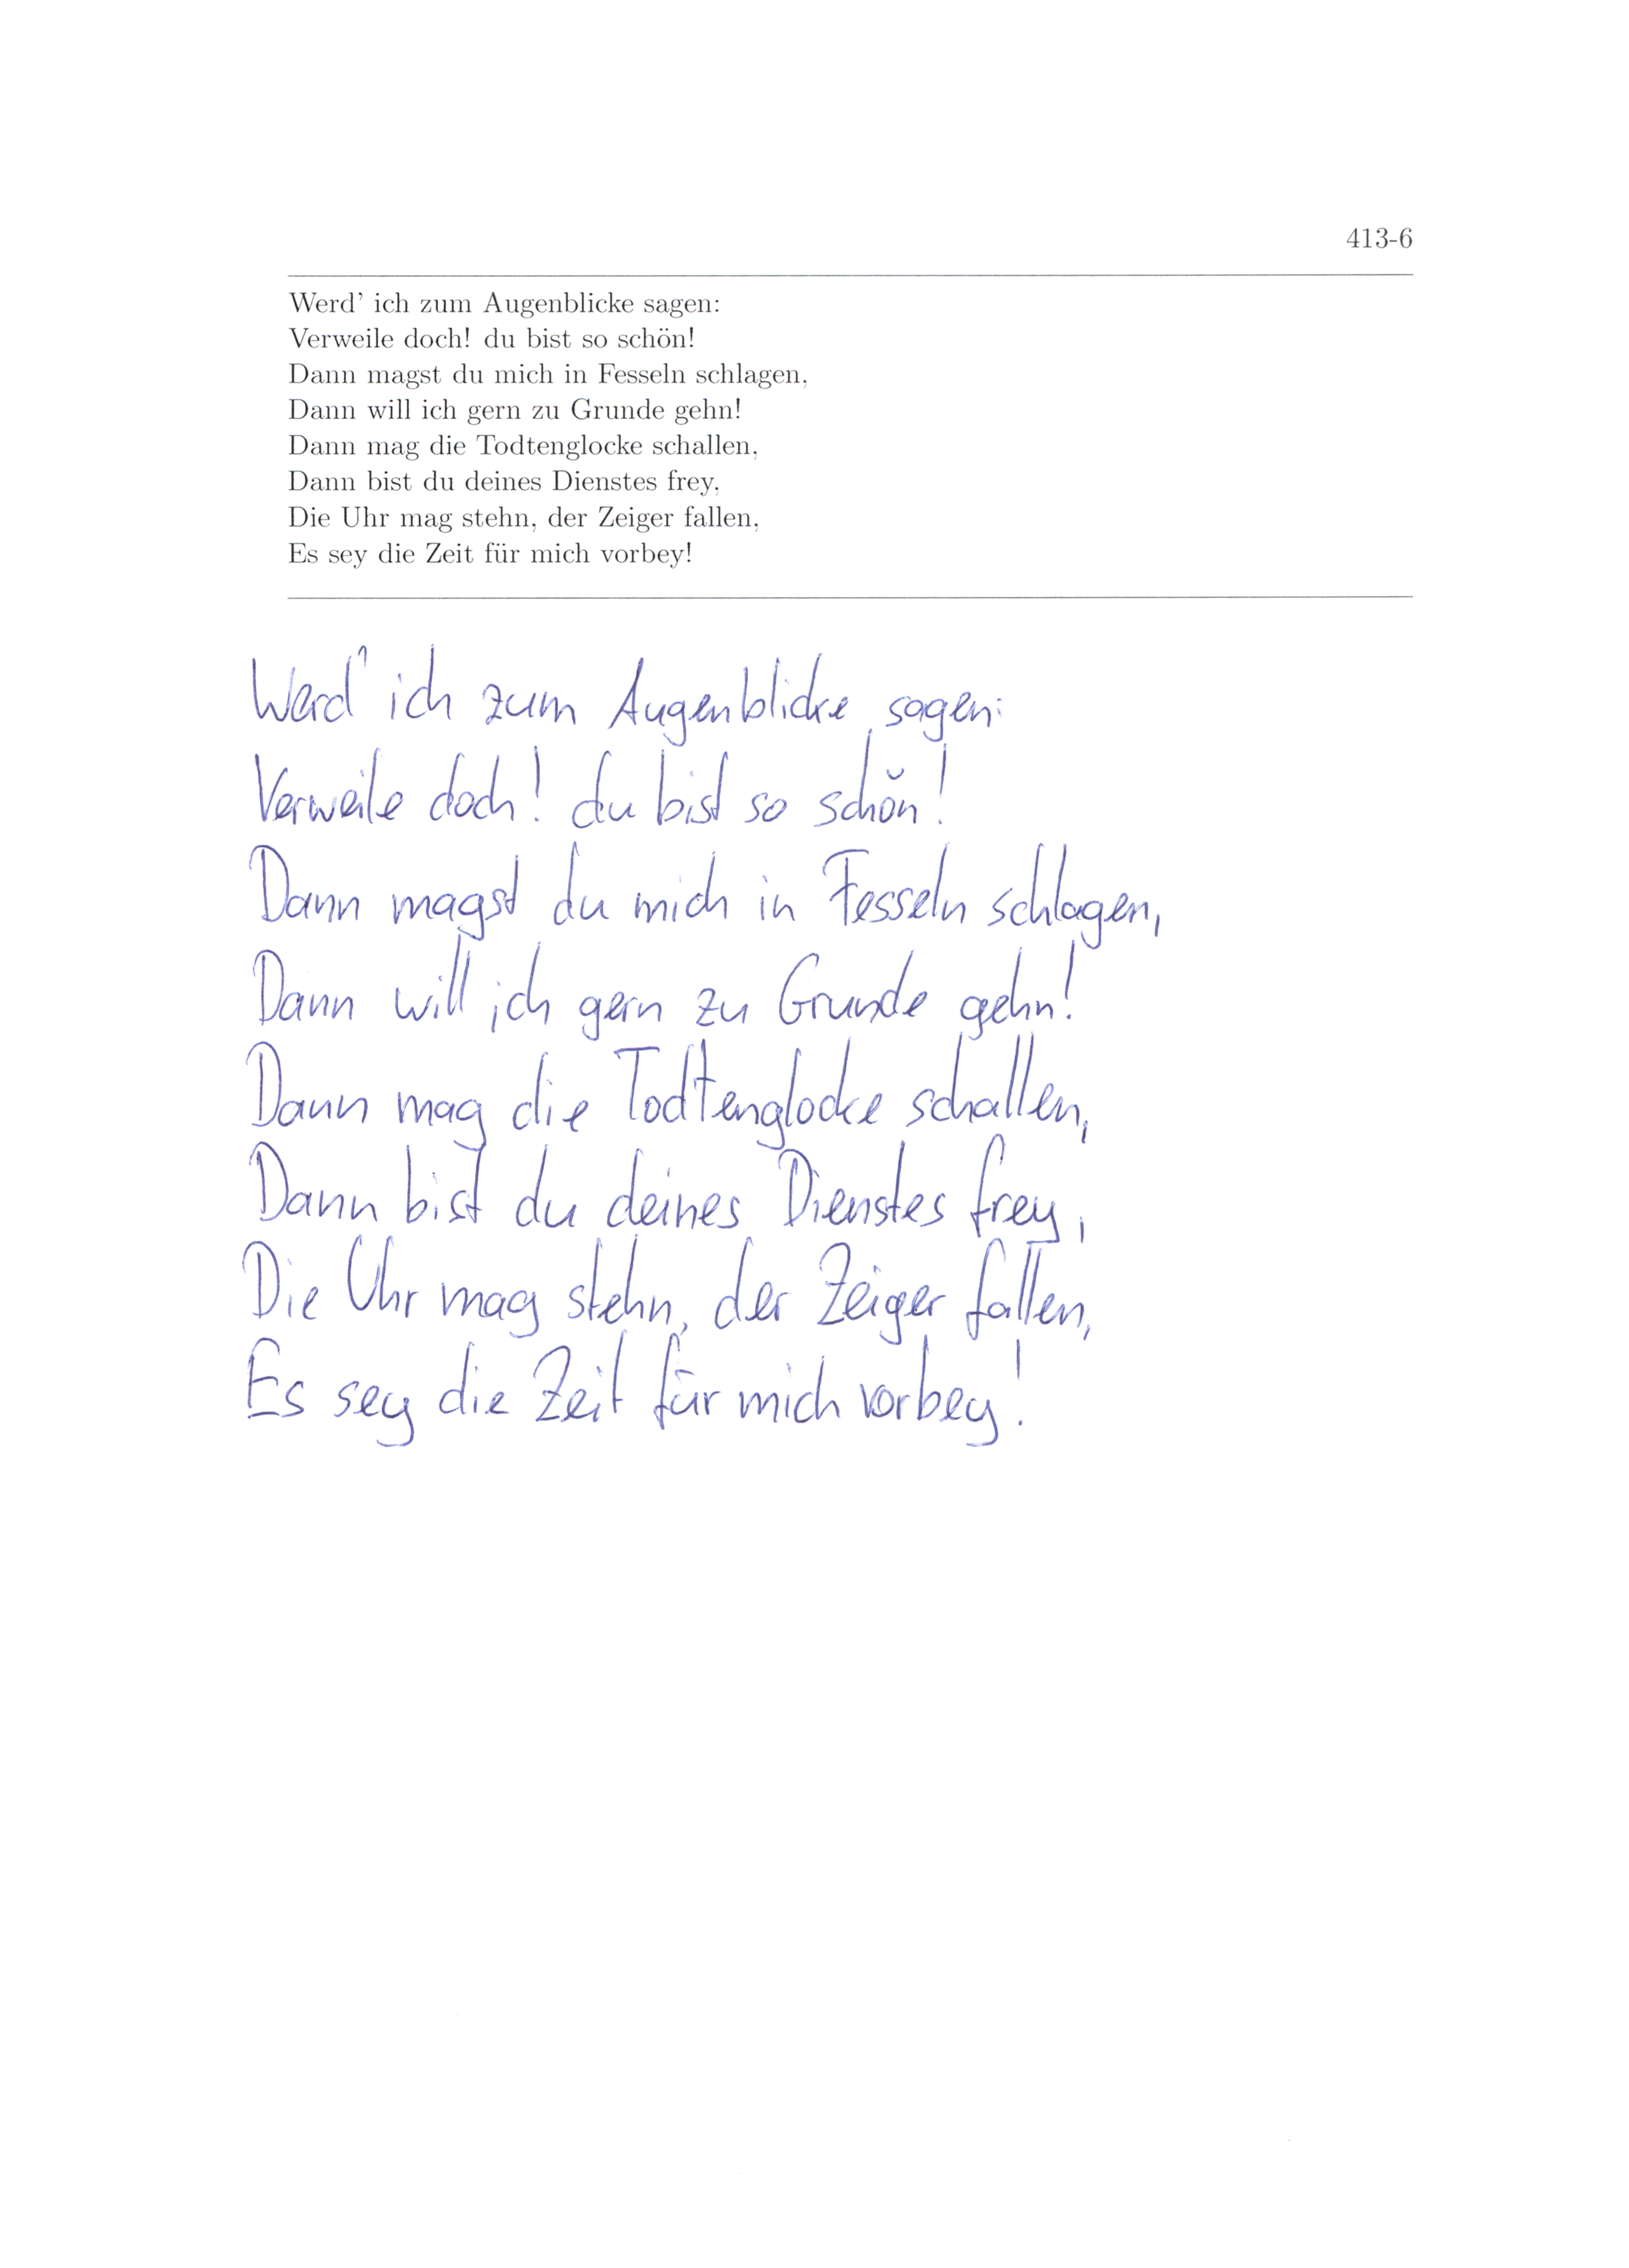 413-6
Werd' ich zum Augenblicke sagen:
Verweile doch! du bist so schön!
Dann magst du mich in Fesseln schlagen,
Dann will ich gern zu Grunde gehn!
Dann mag die Todtenglocke schallen,
Dann bist du deines Dienstes frey,
Die Uhr mag stehn, der Zeiger fallen,
Es sey die Zeit für mich vorbey!
Werd' ich zum Augenblicke sagen:
Verweile doch! du bist so schön!
Dann magst du mich in Fesseln schlagen,
Dann will ich gern zu Grunde gehn!
Dann mag die Todtenglocke schallen,
Dann bist du deines Dienstes frey,
Die Uhr mag stehn, der Zeiger fallen,
Es sey die Zeit für mich vorbey!